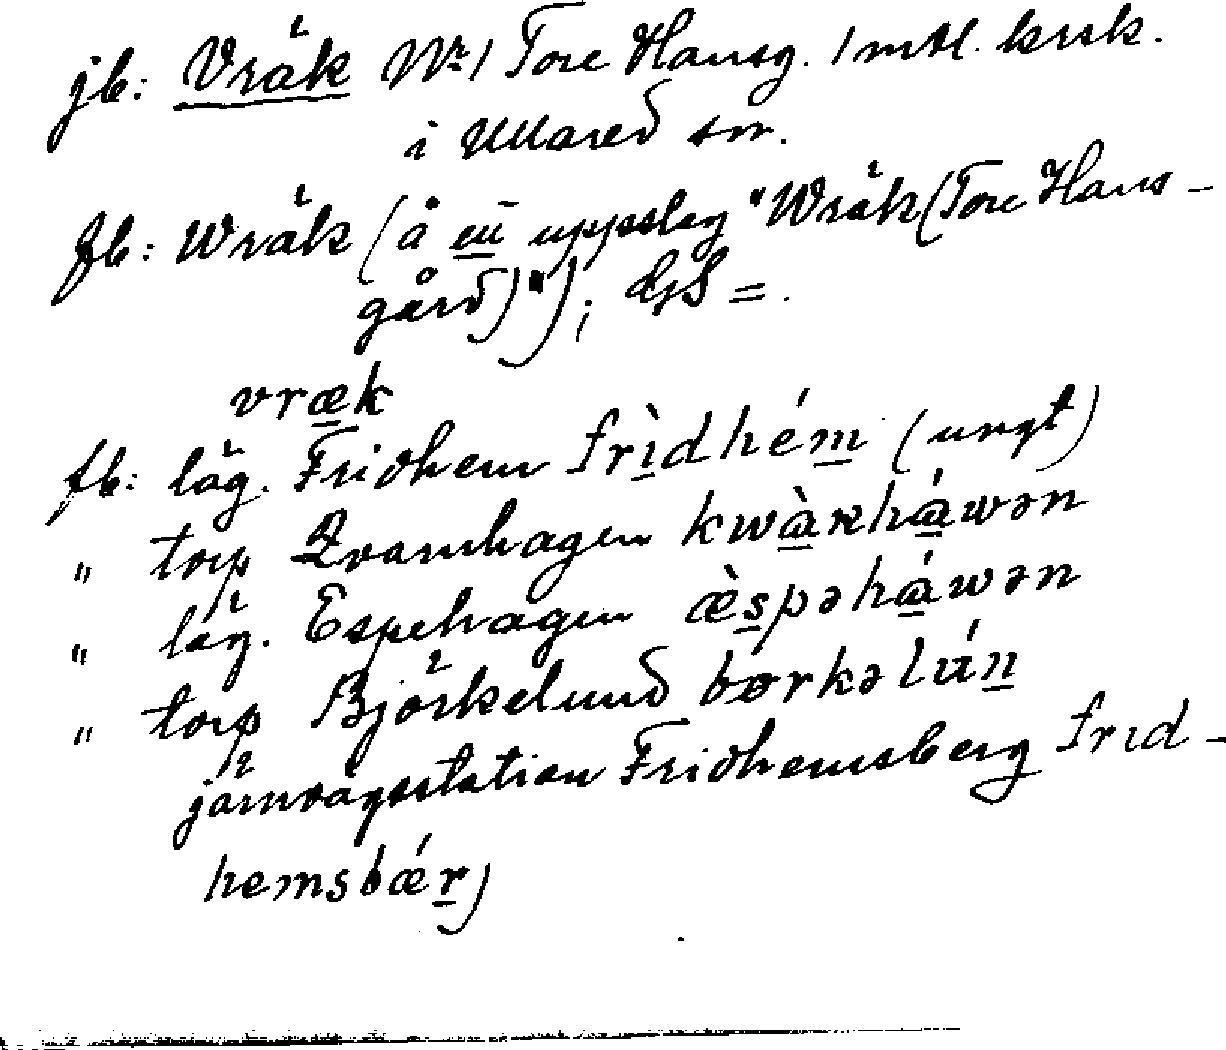 jb: Vräk Nr 1 Tore Hansg. 1 mtl. krsk.
i Ullared sn.
fb: Wräk (å eü uppslag "Wräk (Tore Hans-
gård)"); GS =.
vræk
fb: läg. Fridhem frìdhém (ungt)
" torp Qvarnhagen kwàʀháwən
" läg. Espehagen æ̀spəháwən
" torp Björkelund børkəlún
järnvägsstation Fridhemsberg frid-
hemsbǽr)